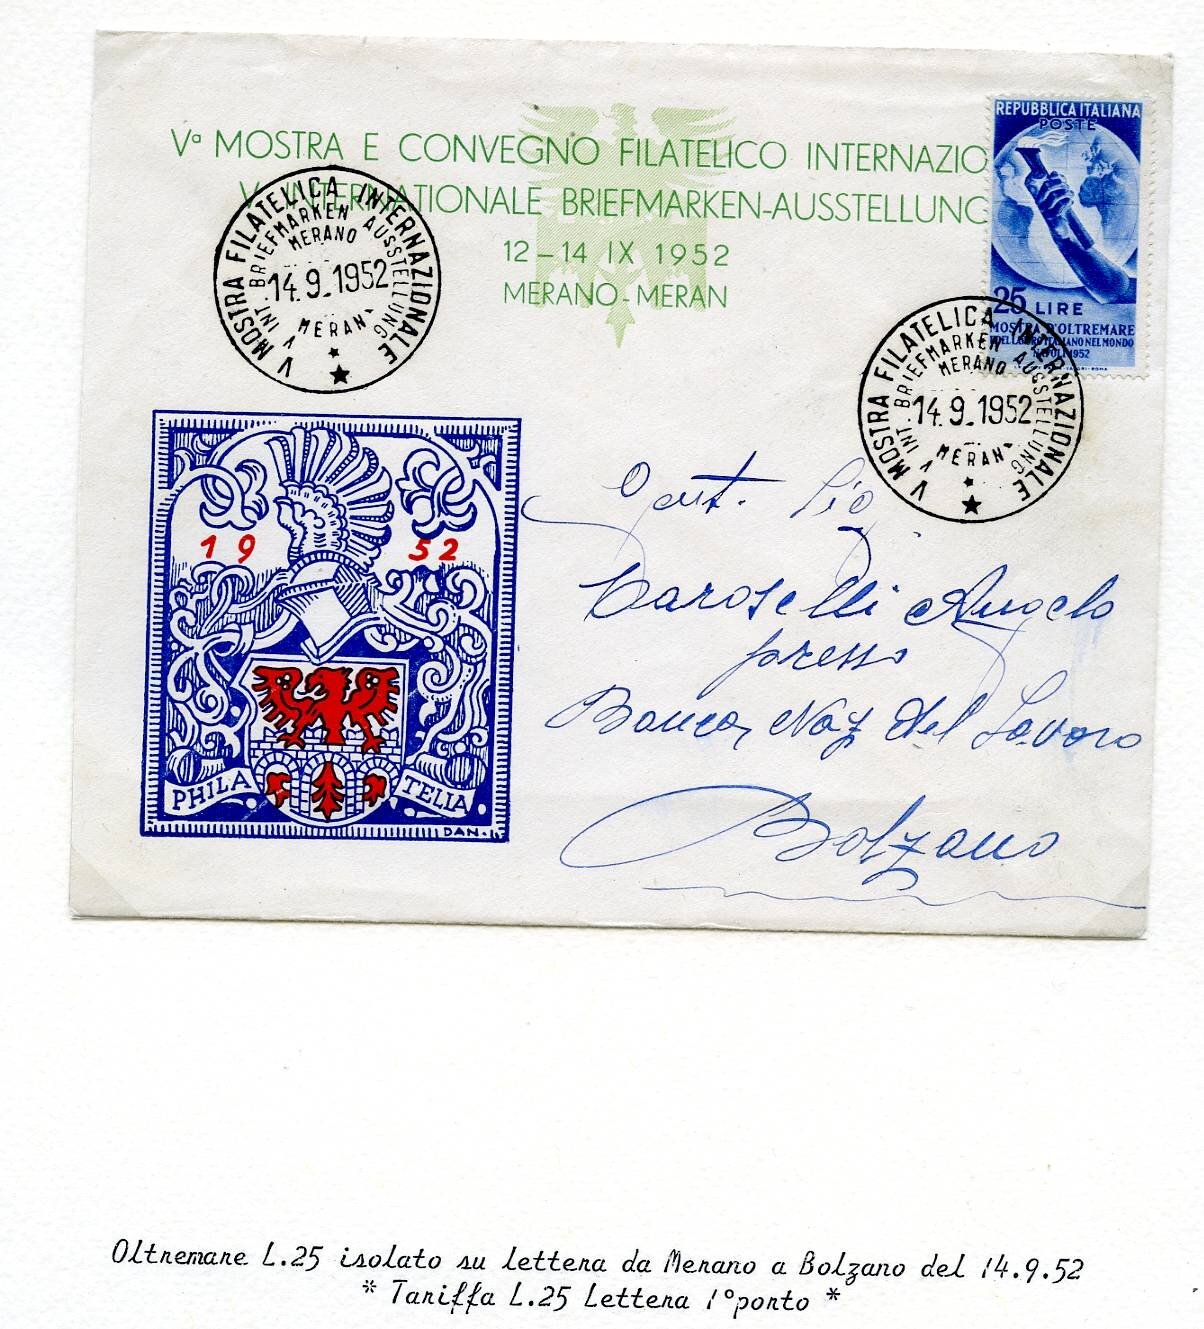 Vª MOSTRA E CONVEGNO FILATELICO INTERNAZIO
V. INTERNATIONALE BRIEFMARKEN-AUSSTELLUNG
12-14 IX 1952
MERANO-MERAN
REPUBBLICA ITALIANA
POSTE
25 LIRE
MOSTRA D'OLTREMARE
E DEL LAVORO ITALIANO NEL MONDO
NAPOLI 1952
V MOSTRA FILATELICA INTERNAZIONALE
V INT. BRIEFMARKEN AUSSTELLUNG
MERANO
14.9.1952
MERAN
V MOSTRA FILATELICA INTERNAZIONALE
V INT. BRIEFMARKEN AUSSTELLUNG
MERANO
14.9.1952
MERAN
1952
PHILATELIA
DAN.
Gent. Sig
Caroselli Angelo
presso
Banca Naz del Lavoro
Bolzano
Oltremare L.25 isolato su lettera da Merano a Bolzano del 14.9.52
* Tariffa L.25 Lettera 1°porto *